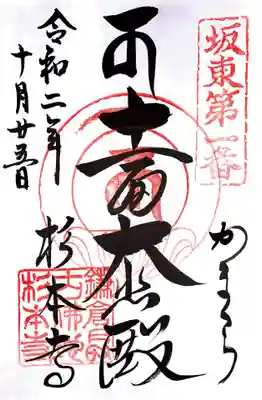 坂東第一番
かまくら
十一面大悲殿
杉本寺
令和二年
十月廿五日
鎌倉最
古佛地
杉本寺